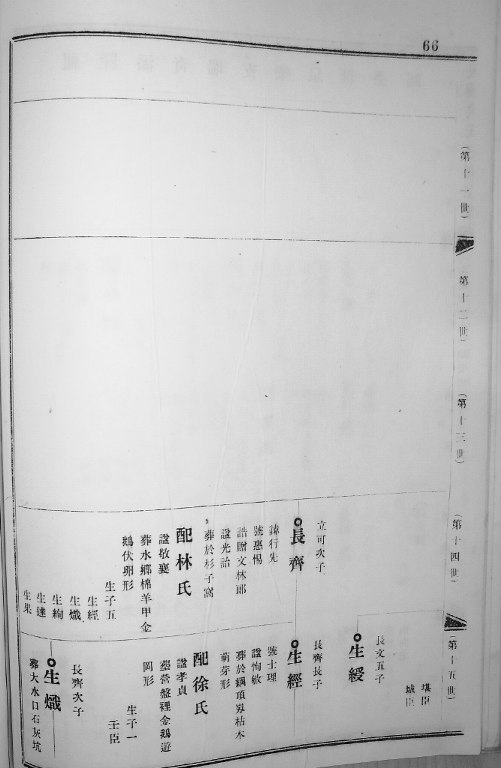 66
(第十一世)
(第十二世)
(第十三世)
(第十四世)
立可次子
長齊
諱行先
號惠惕
誥贈文林郎
諡光詒
葬於杉子窩
配林氏
諡敬襄
葬水鄉棉羊甲金
鵝伏卵形
生子五
生經
生熾
生絢
生達
生果
(第十五世)
堪臣
城臣
長文五子
生綬
長齊長子
生經
號士理
諡恂敏
葬於鐵項吳枯木
萌芽形
配徐氏
諡孝貞
墨營盤裡金鵝遊
岡形
生子一
壬臣
長齊次子
生熾
葬大水口石灰坑